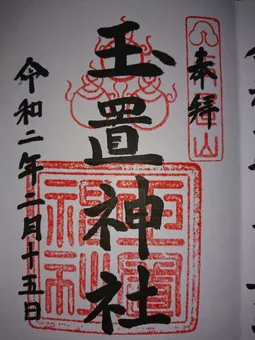 奉拝
玉置神社
令和二年二月十五日
玉置
神社